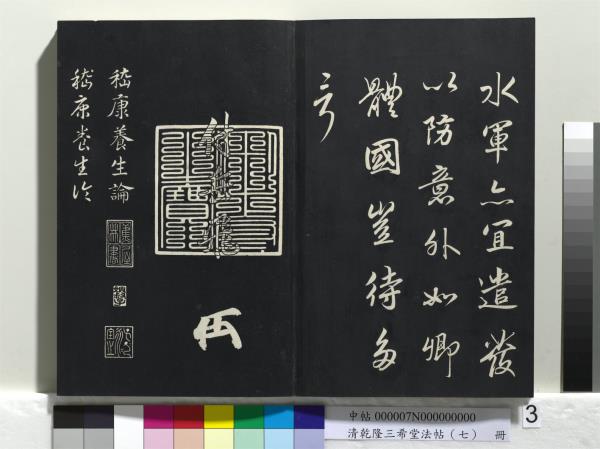 水軍亦宜遣發
以防意外如卿
體國豈待多
言
嵇康養生論
嵇康養生論
中帖 000007N000000000
清乾隆三希堂法帖（七） 冊
3